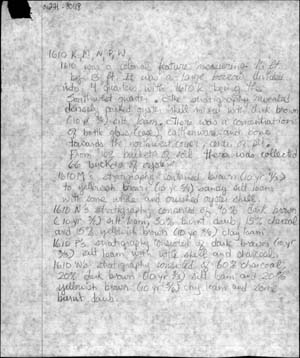 1610 K, M, N, P, W
1610 was a colonial feature measuring 14 ft
by 13 ft. It was a large divided
into 4 quarters with 1610 K being the
Southwest quarter. The stratigraphy revealed
densely packed oyster shell mixed with dark brown
(10 yr 3/3) silt loam. There was a concentration
of bottle glass (case), earthenware and bone
towards the northwest corner, center of pit.
From 102 buckets of soil there was collected
66 buckets of oyster shell.
1610 M's stratigraphy contained brown (10 yr 4/3)
to yellowish brown (10 yr 5/4) sandy silt loam
with some whole and crushed oyster shell.
1610 N's stratigraphy consisted of 40% dark brown
(10 yr 3/3) silt loam, 25% burnt daub, 15% charcoal
and 15% yellowish brown (10 yr 5/6) clay loam
1610 P's stratigraphy consisted of dark brown (10 yr
3/3) silt loam with with shell and charcoal.
1610 W's stratigraphy consisted of 60% charcoal,
20% dark brown (10 yr 3/3) silt loam and 20%
yellowish brown (10 yr 5/6) clay loam and some
burnt daub.